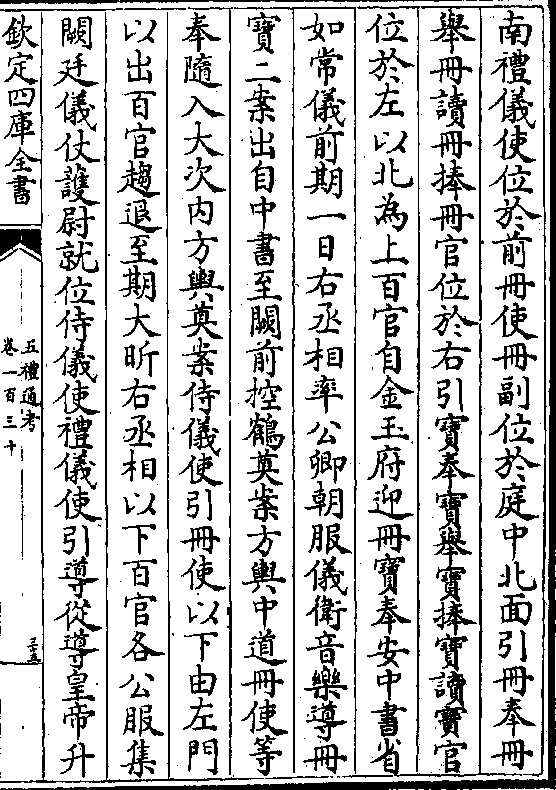 南禮儀使位於前冊使冊副位於庭中北面引冊奉冊
舉冊讀冊捧冊官位於右引寶奉寶舉寶捧寶讀寶官
位於左以北為上百官自金玉府迎冊寶奉安中書省
如常儀前期一日右丞相率公卿朝服儀衛音樂導冊
寶二案出自中書至闕前控鶴奠案方輿中道冊使等
奉隨入大次内方輿奠案侍儀使引冊使以下由左門
以出百官趨退至期大昕右丞相以下百官各公服集
闕廷儀仗護尉就位侍儀使禮儀使引導從導皇帝升
欽定四庫全書
五禮通考
卷一百三十
三十五